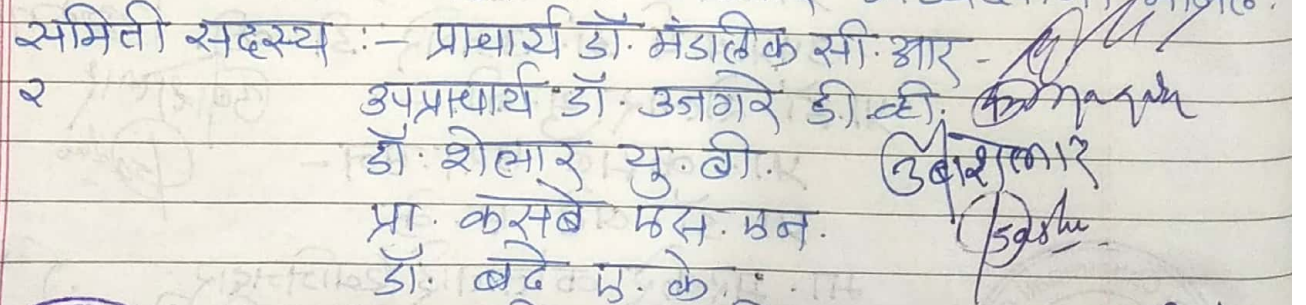 समिती सदस्य :- प्राचार्य डॉ. मंडलीक सी. आर -
२ उपप्राचार्य डॉ. उनगरे डी. व्ही.
डॉ. शेलार यु. बी.
प्रा. कसबे एस. एन.
डॉ. बदे ए. के.